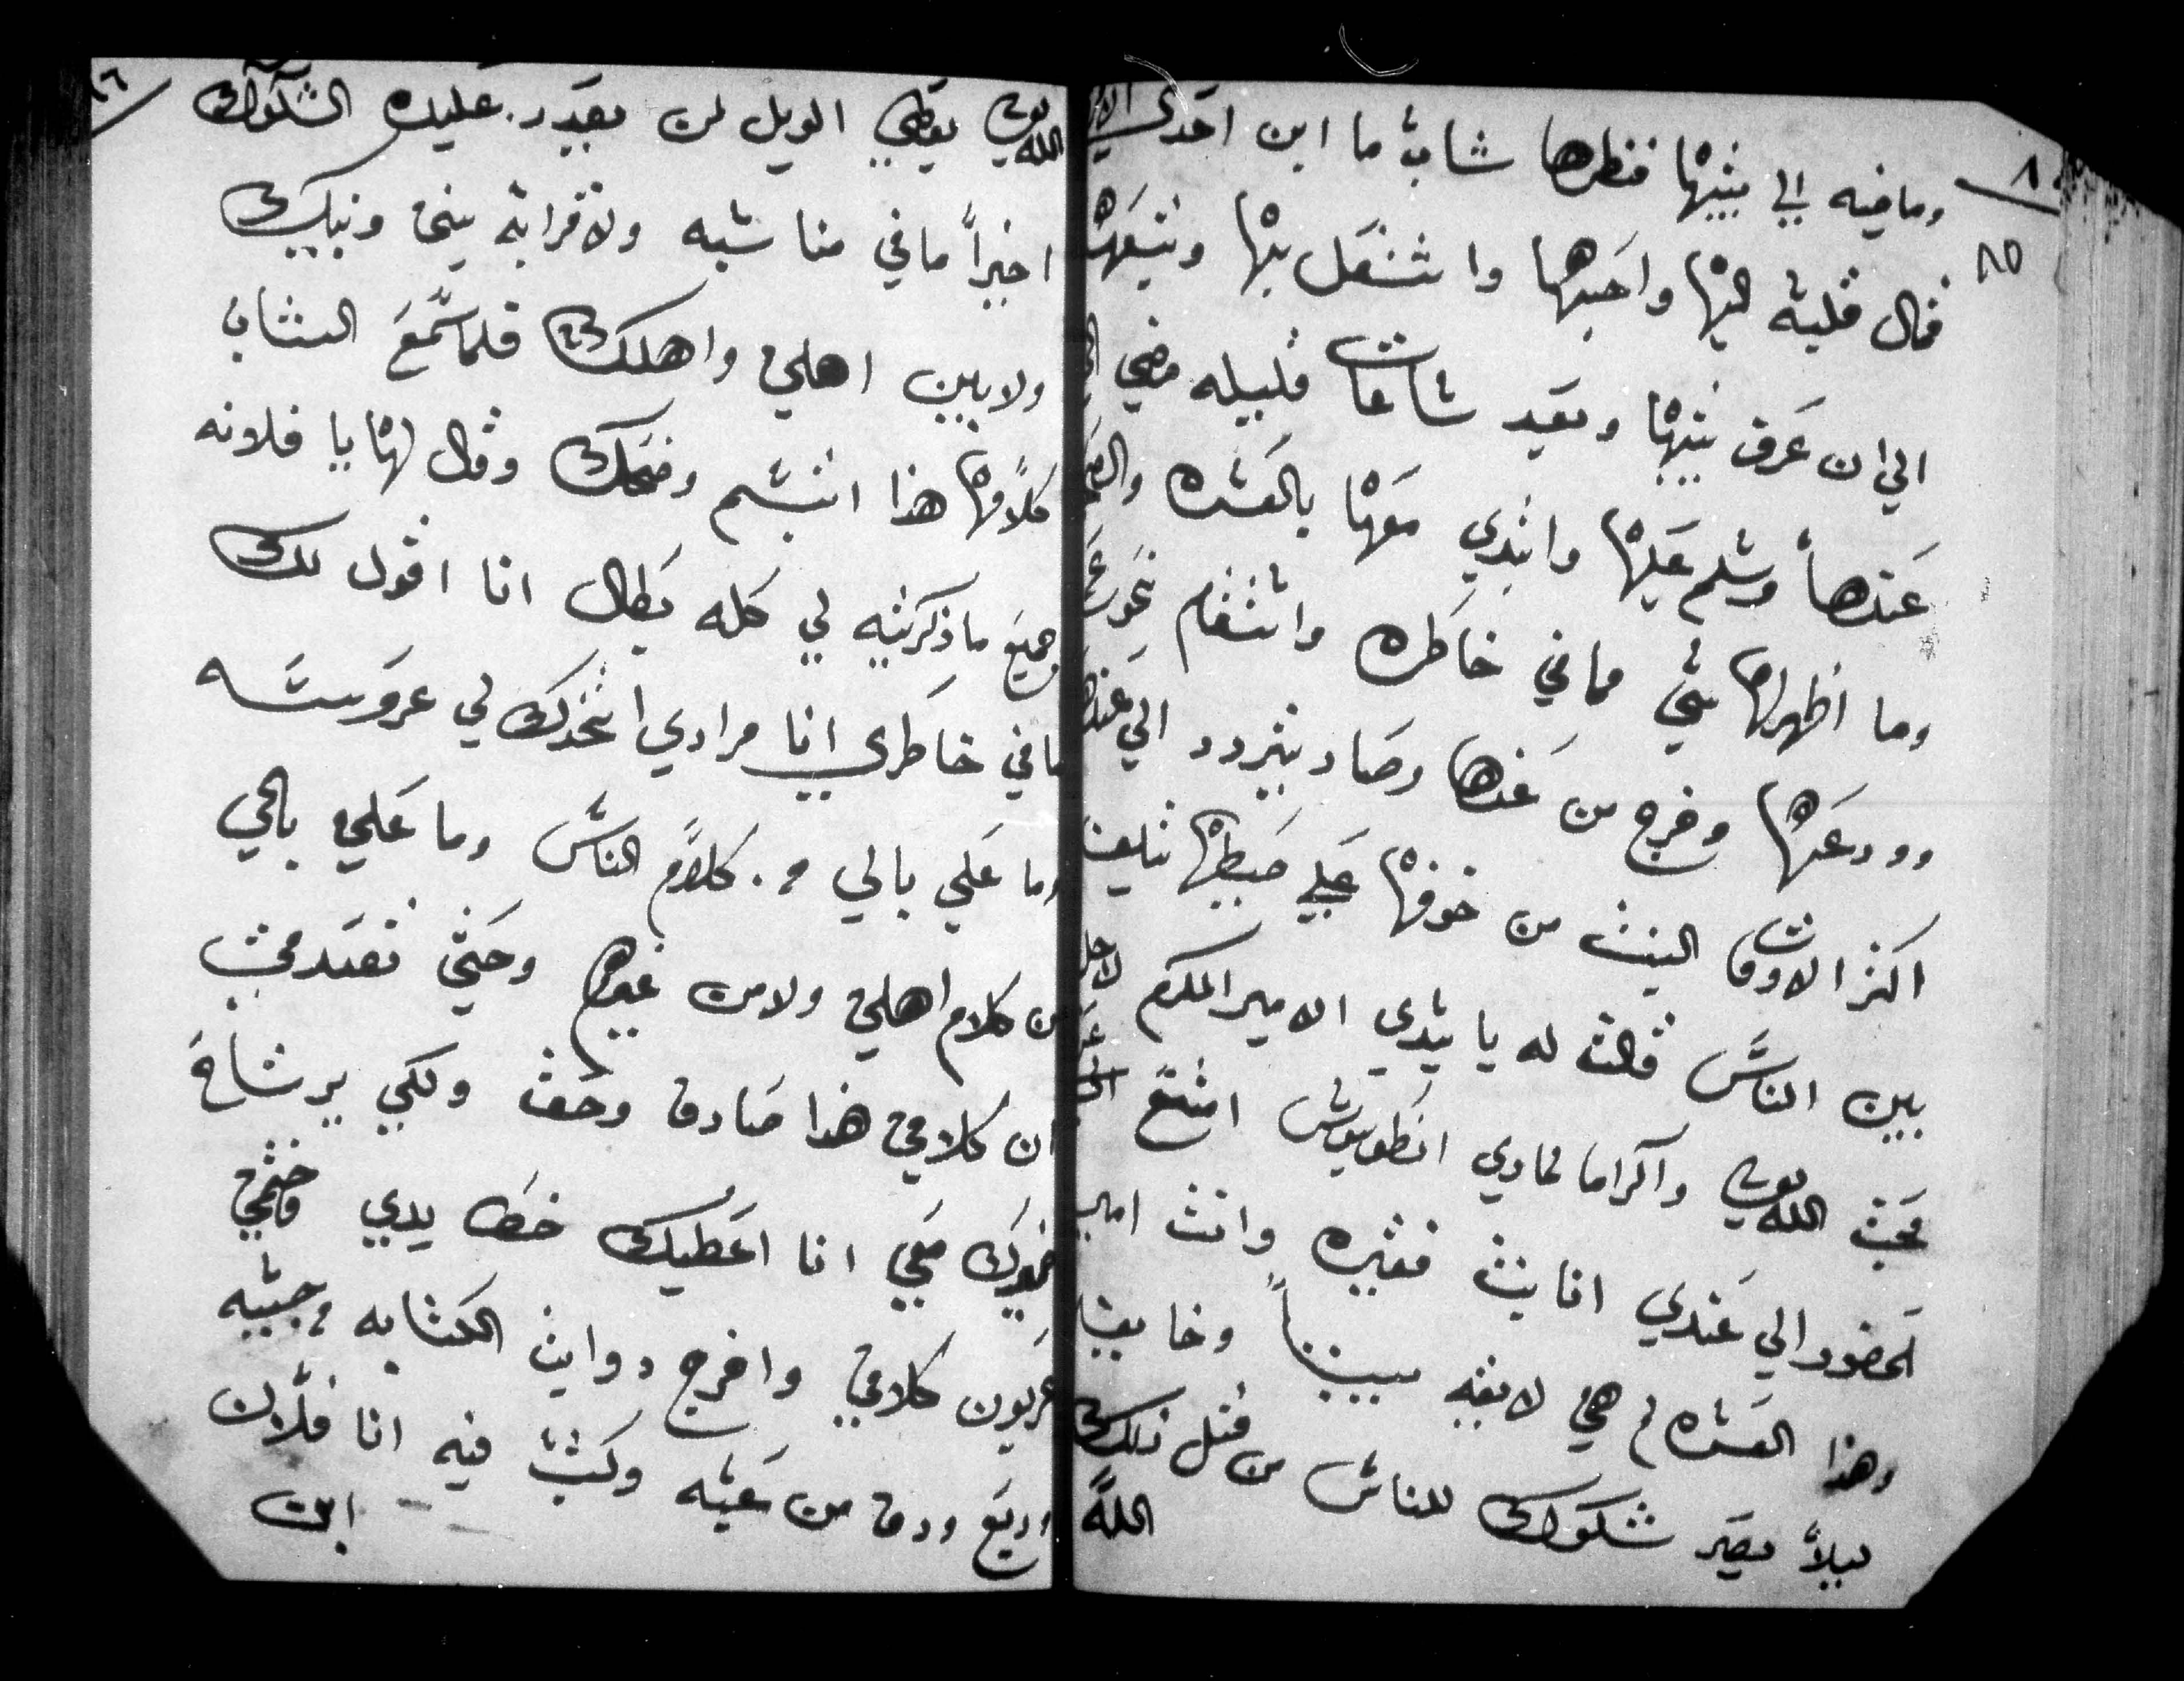 ٨٥
وماضيه الي بيتها فنظرها شاب ما ابن احدي
فمال قلبه اليها واحبها واشتغل بها وتبعها
الي ان عرف بيتها وبعد ساعات قليله مضي
عندها وسلم عليها وابتدي معها بالعشره
وما اظهر لها شي مما في خاطره واستقام نحو
وودعها وخرج من عندها وصار يتردد الي عندها
اكثر الاوقات البنت من خوفها علي صيطها
بين الناس قالت له يا سيدي الامير المكرم لاجل
محبت الله واكراما لماري انطونيوس امتنع
الحضور الي عندي انا بنت فقيره وانت امير
وهذا العشره م هي لايقه بيننا وخايفه
ليلا يصير شكوك للناس من قبل ذلك
الله
٨٦
الله يعطي الويل لمن بيده الشكوك
اخيرا مافي مناسبه ولا قرابه بيني وبينك
ولا بين اهلي واهلك فلما سمع الشاب
كلامها هذا ابتسم وضحك وقال لها يا فلانه
جميع ما ذكرتيه لي كله بطال انا اقول لك
ما في خاطري انا مرادي اتخذك لي عروسه
وما علي بالي م كلام الناس وما علي بالي
من كلام اهلي ولا من غيرهم وحتي تعتمدي
ان كلامي هذا صادق وحق ولكي يرتاح
ضميرك معي انا اعطيك خط يدي وختمي
عربون كلامي واخرج دوايت الكتابه م جيبه
وربع ورق من عبه وكتب فيه انا فلان
ابن